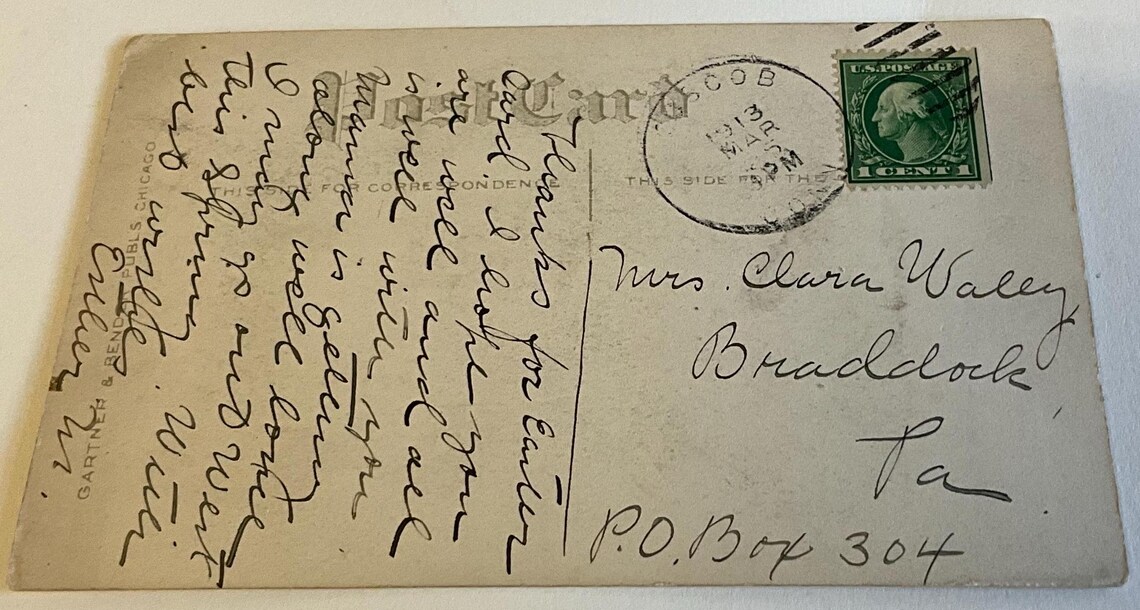 Post Card
THIS SIDE FOR CORRESPONDENCE
THIS SIDE FOR THE
GARTNER & BENDER PUBLS CHICAGO
COS COB
1913
MAR
PM
CONN
U.S. POSTAGE
1 CENT 1
Thanks for Easter
Card. I hope you
are well and all
is well with you
Mamma is getting
along well
I may go out West
this Spring. Will
write
Mrs. Clara Waley
Braddock,
Pa
P.O. Box 304